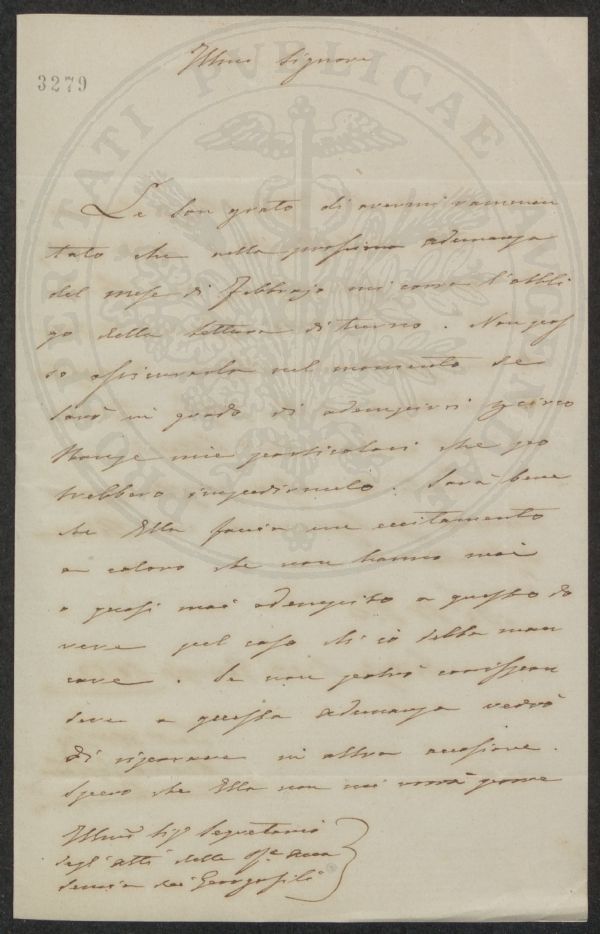 Illmo Signore
3279
PROSPERITATI PUBLICAE AUGENDAE
Le son grato di avermi rammen
tato che nella prossima adunanza
del mese di Febbrajo mi corre l'obbli
go della lettura di turno. Non pos
so assicurarla nel momento se
sarò in grado di adempirvi p circo
stanze mie particolari che po
trebbero impedirmelo. Sarà bene
che Ella faccia un eccitamento
a coloro che non hanno mai
o quasi mai adempito a questo do
vere pel caso ch'io della man
care. Se non potrò corrispon
dere a questa adunanza vedrò
di riparare in altra occasione.
Spero che Ella non mi vorrà
Illmo Sigr Segretario
degli Atti della Rle Acca
demia dei Georgofili